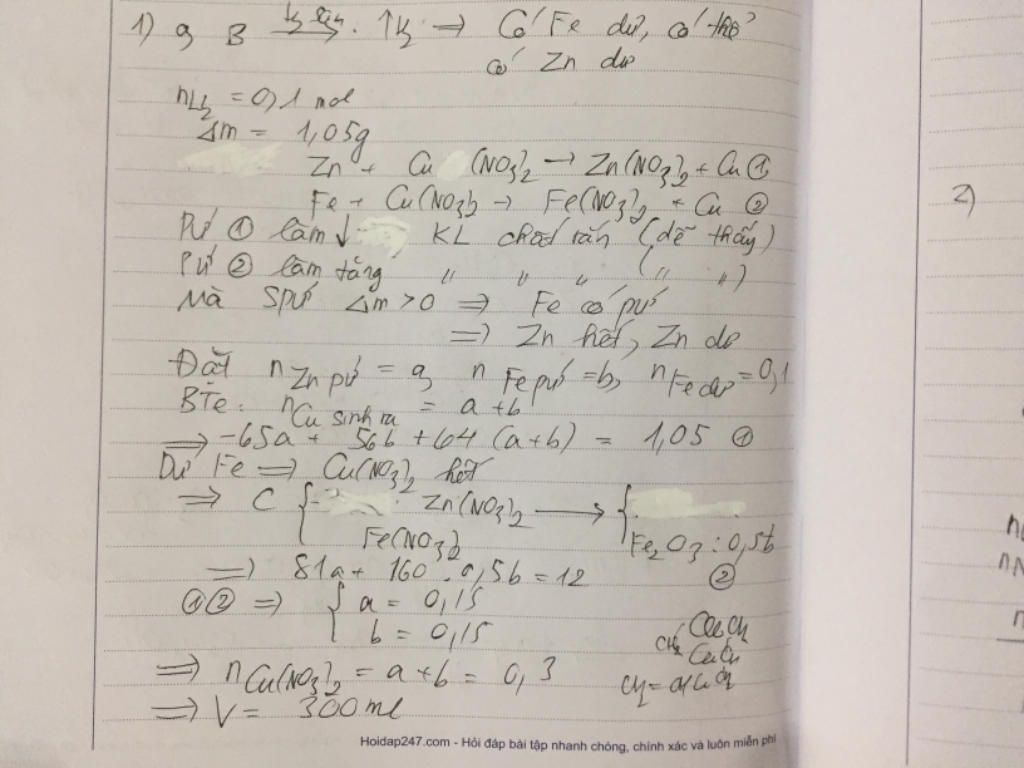 1) B → ↑ → Có Fe dư, có thể
có Zn dư
nH₂ = 0,1 mol
Δm = 1,05g
Zn + Cu (NO₃)₂ → Zn(NO₃)₂ + Cu ①
Fe + Cu(NO₃)₂ → Fe(NO₃)₂ + Cu ②
Pứ ① làm ↓ KL chất rắn (dễ thấy)
Pứ ② làm tăng " " " (" ")
Mà Spứ Δm > 0 ⇒ Fe có pứ
⇒ Zn hết, Zn dư
Đặt n Zn pứ = a, n Fe pứ = b, n Fe dư = 0,1
BTe: n Cu sinh ra = a + b
⇒ -65a + 56b + 64 (a+b) = 1,05 ①
Dư Fe ⇒ Cu(NO₃)₂ hết
⇒ C { Zn(NO₃)₂ → {
Fe(NO₃)₂ Fe₂O₃ : 0,5b
⇒ 81a + 160 . 0,5b = 12 ②
①② ⇒ { a = 0,15
b = 0,15
⇒ nCu(NO₃)₂ = a + b = 0,3
⇒ V = 300ml
Hoidap247.com - Hỏi đáp bài tập nhanh chóng, chính xác và luôn miễn phí
2)